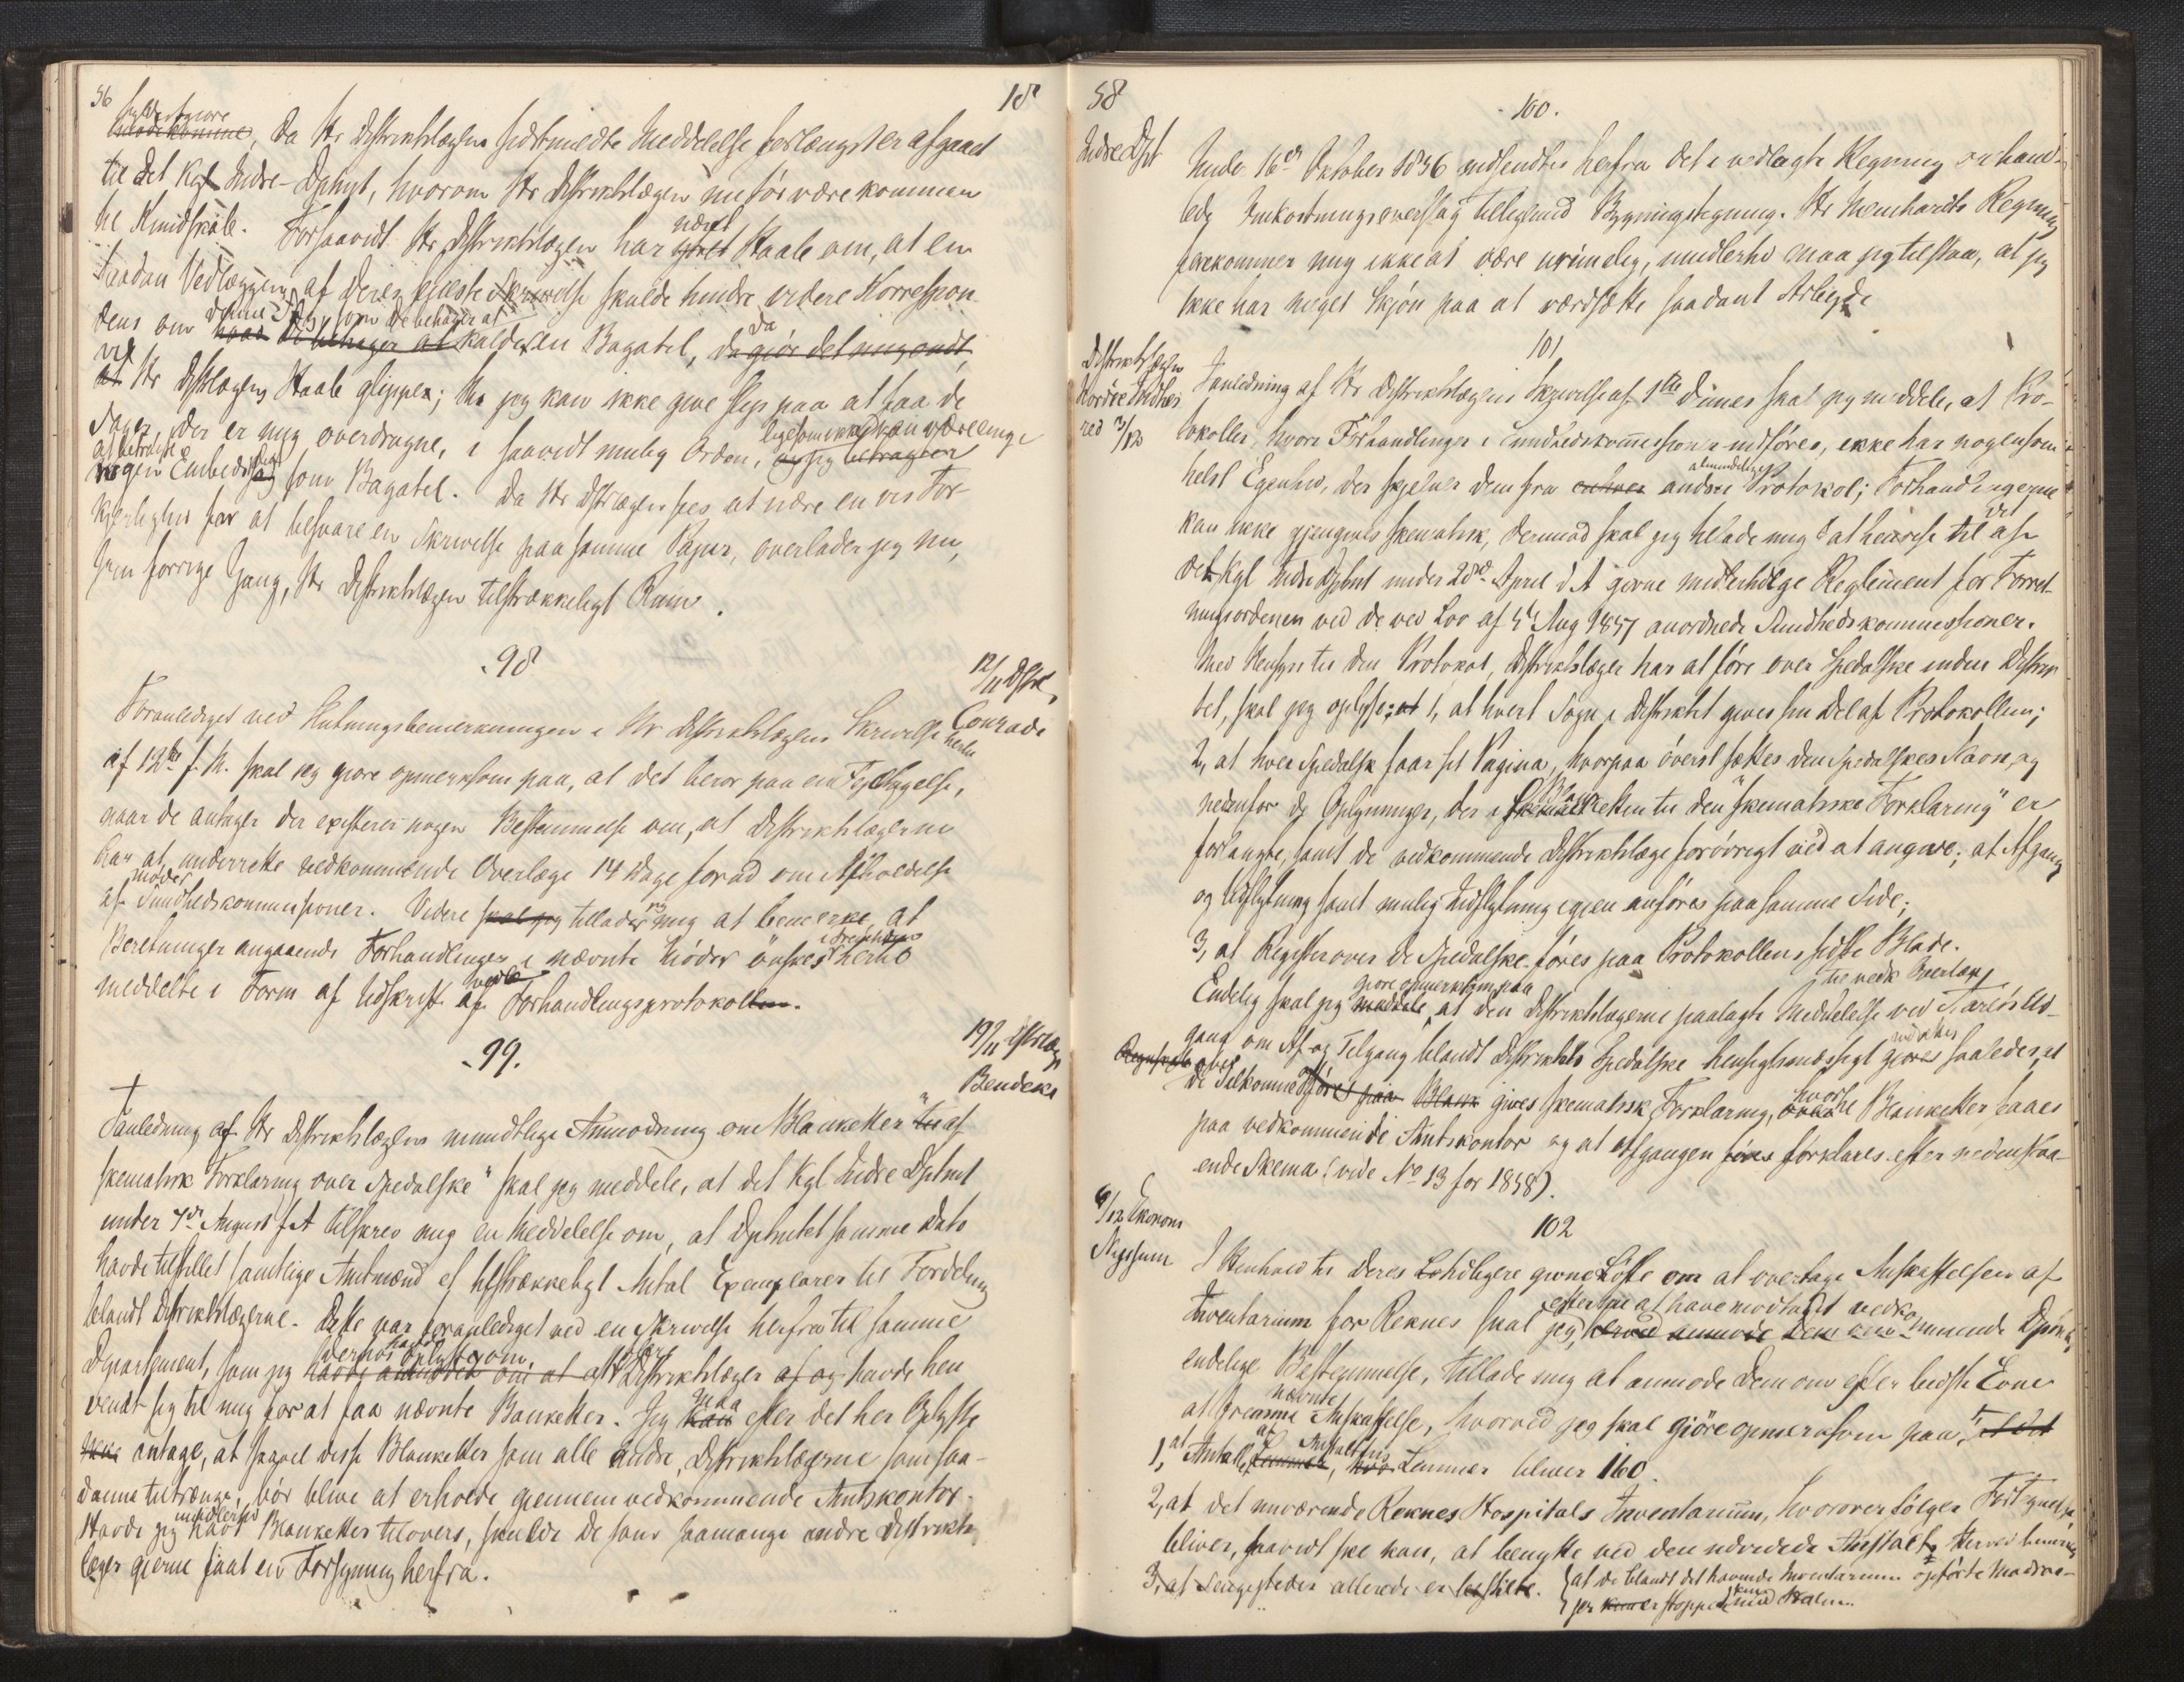 56
18
fyldestgiøre
imødekomme, da Hr Distriktslægens sidstmeldte Meddelelse forlængst er afgaaet
til det Kgl Indre-Dptmt, hvorom Hr Distriktslægen nu før være kommen
til Kundskab. Forsaavidt Hr Distriktslægen har næret Haab om, at en
saadan Vedlæggen af Deres sidste Skrivelse skulde hindre videre Korrespon-
dens om denne Sag, som De behager at kalde en Bagatel, da gjør det mig ondt,
at Hr Dstlægens Haab glipper; thi jeg kan ikke give slip paa at faa de
Sager, der er mig overdragne, i saavidt mulig Orden, ligesom jeg ikke kan
at betragte
nogen Embedssag som Bagatel. Da Hr Dstlægen sees at nære en vis For-
kjerlighed for at besvare en Skrivelse paa samme Papir, overlader jeg nu,
som forrige Gang, Hr Distriktslægen tilstrækkeligt Rum.
98
12/11 Dstrl
Conradi
Foranlediget ved Slutningsbemerkningen i Hr Distriktslægens Skrivelse
af 12te f. M. skal jeg gjøre opmerksom paa, at det beror paa en Fejltagelse,
naar De antager der existerer nogen Bestemmelse om, at Distriktslægerne
har at underrette vedkommende Overlæge 14 Dage forud om Afholdelse
møder
af Sundhedskommissioner. Videre skal jeg tillader jeg mig at bemerke, at
Beretninger angaaende Forhandlinger i nævnte Møder ønskes i Fremtiden herhid
meddelte i Form af Udskrift af Forhandlingsprotokollen.
99.
19/11 Dstrlæg
Bendeke
I Anledning af Hr Distriktslægens mundtlige Anmodning om Blanketter "til
skematisk Forklaring over Spedalske" skal jeg meddele, at det Kgl Indre Dptmt
under 4de August f A tilskrev mig en Meddelelse om, at Dptmtet samme Dato
havde tilstillet samtlige Amtmænd et tilstrækkeligt Antal Exemplarer til Fordeling
blandt Distriktslægerne. Dette var foranlediget ved en Skrivelse herfra til samme
Departement, som jeg havde anmodet om at Distriktslæger af og havde hen-
vendt sig til mig for at faa nævnte Banketter. Jeg maa efter det her Oplyste
ikke antage, at saavel disse Blanketter som alle andre, Distriktslægerne som saa-
danne tiltrænge, bør blive at erholde giennem vedkommende Amtskontor.
Havde jeg imidlertid havt Blanketter tilovers, skulde De som saamange andre Distrikts-
læger gjerne faaet en Forsyning herfra.
58
100.
Indre Dpt
Under 16de Oktober 1856 indsendtes herfra det i vedlagte Regning omhand-
lede Omkostningsoverslag tilligemed Bygningstegning. Hr Meinhardts Regning
forekommer mig ikke at være urimelig, imidlertid maa jeg tilstaa, at jeg
ikke har meget Skjøn paa at værdsætte saadant Arbejde
101
Distriktslægen
Nordre
7/12
I Anledning af Hr Distriktslægens Skrivelse af 1ste dennes skal jeg meddele, at Pro-
tokoller, hvori Forhandlinger i Sundhedskommissioner indføres, ikke har nogensom-
helst Egenhed, der skjelner dem fra enhver anden almindelig Protokol; Forhandlingerne
kan ikke gjengives skematisk, derimod skal jeg tillade mig at henvise til det af
det Kgl Indre Dptmt under 28de April d A givne midlertidige Reglement for Forret-
ningsordenen ved de ved Lov af 5te Aug 1857 anordnede Sundhedskommissioner.
Med Hensyn til den Protokol, Distriktslæger har at føre over Spedalske inden Distrik-
tet, skal jeg oplyse: at 1, at hvert Sogn i Distriktet gives sin Del af Protokollen;
2, at hver Spedalsk faar sit Pagina, hvorpaa øverst sættes den Spedalskes Navn og
nedenfor de Oplysninger, der i Blanketten til den "skematiske Forklaring" er
forlangte, samt de vedkommende Distriktslæge forøvrigt ved at angive; at Afgang
og Udflytning samt mulig Indflytning igjen anføres paa samme Side;
3, at Register over de Spedalske føres paa Protokollens sidste Blade.
til vedk Overlæge
Endelig skal jeg gjøre opmerksom paa at den Distriktslægerne paalagte Meddelelse ved Aarets Ud-
gang om Af- og Tilgang blandt Distriktets Spedalske hensigtsmæssigt gjøres saaledes, at
over
de Tilkomne føres paa Blank gives skematisk Forklaring, hvortil Blanketter faaes
paa vedkommende Amtskontor og at Afgangen føres forklares efter nedenstaa-
ende Skema (vide No 13 for 1858).
102
9/12 Ekonom
I Henhold til Deres tidligere givne Løfte om at overtage Anskaffelsen af
Inventarium for Reknes skal jeg, efter nu at have modtaget vedkommende Dptmts
endelige Bestemmelse, tillade mig at anmode Dem om efter bedste Evne
at fremme nævnte Anskaffelse, hvorved jeg skal gjøre opmerksom paa, at det
1, at Antallet af Anstaltens Lemmer bliver 160.
2, at det nuværende Reknes Hospitals Inventarium, hvorover følger Fortegnelse
bliver, saavidt ske kan, at benytte ved den udvidede Anstalt
3, at Sengesteder allerede er bestilte. at de blandt det havende Inventarium opførte Madras-
ser kun er stoppede med Halm.